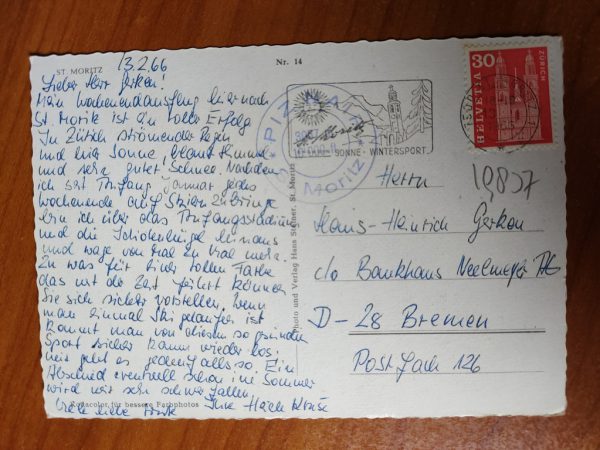 ST. MORITZ
13.2.66
Nr. 14
Lieber Herr Gerken!
Mein Wochenendausflug hier nach
St. Moritz ist ein voller Erfolg
In Zürich strömender Regen
und hier Sonne, blauer Himmel
und sehr guter Schnee. Nachdem
ich seit Anfang Januar jedes
Wochenende auf Skiern zubringe
bin ich über das Anfangsstadium
und die Idiotenhügel hinaus
und wage von Mal zu Mal mehr.
Zu was für einer tollen
das mit der Zeit führt können
Sie sich sicher vorstellen. Wenn
man einmal Ski gelaufen ist
kommt man von diesem so gesunden
Sport sicher kaum wieder los.
Mir geht es jedenfalls so. Ein
Abschied eventuell schon im Sommer
wird mir sehr schwer fallen.
Viele liebe Grüße Ihre
Rotacolor für bessere Farbphotos
Photo und Verlag Hans Steiner, St. Moritz
PIZ NAIR
St. Moritz
St. Moritz
SONNE - WINTERSPORT
30
HELVETIA
ZÜRICH
Herrn
Hans-Heinrich Gerken
c/o Bankhaus Neelmeyer AG
D-28 Bremen
Postfach 126